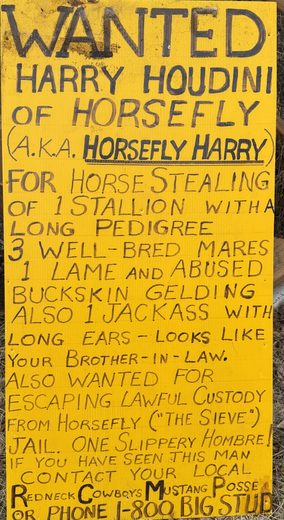 WANTED
HARRY HOUDINI
OF HORSEFLY
(A.K.A. HORSEFLY HARRY)
FOR HORSE STEALING
OF 1 STALLION WITH A
LONG PEDIGREE
3 WELL-BRED MARES
1 LAME AND ABUSED
BUCKSKIN GELDING
ALSO 1 JACKASS WITH
LONG EARS - LOOKS LIKE
YOUR BROTHER-IN-LAW.
ALSO WANTED FOR
ESCAPING LAWFUL CUSTODY
FROM HORSEFLY ("THE SIEVE")
JAIL. ONE SLIPPERY HOMBRE!
IF YOU HAVE SEEN THIS MAN
CONTACT YOUR LOCAL
REDNECK COWBOYS MUSTANG POSSE
OR PHONE 1-800 BIG STUD